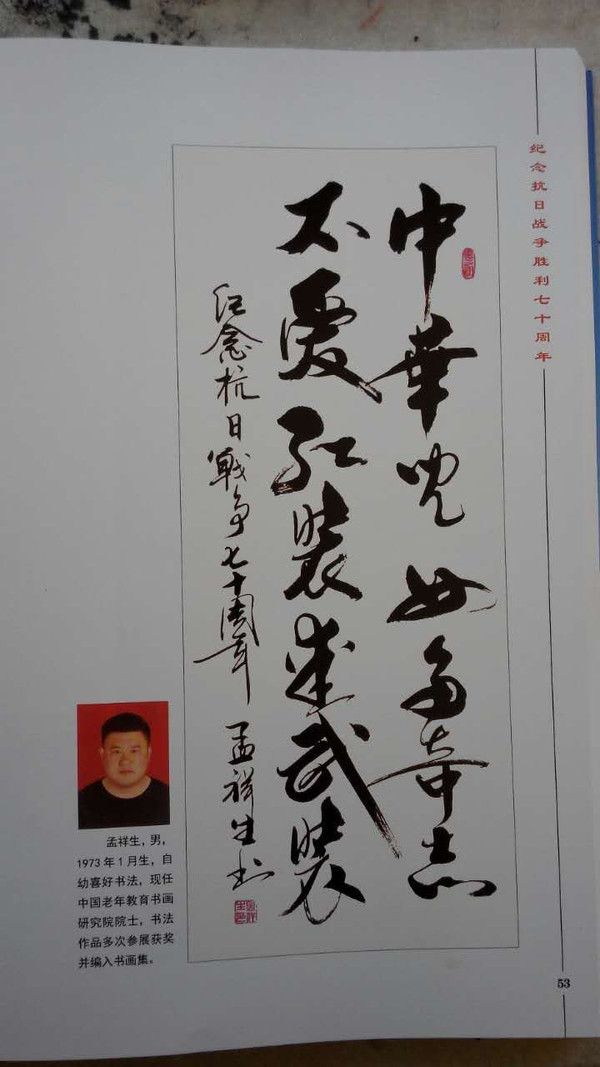 纪念抗日战争胜利七十周年
中華兒女多奇志
不愛红裝愛武裝
纪念抗日戰争七十周年 孟祥生书
孟祥生，男，
1973年1月生，自
幼喜好书法，现任
中国老年教育书画
研究院院士，书法
作品多次参展获奖
并编入书画集。
53